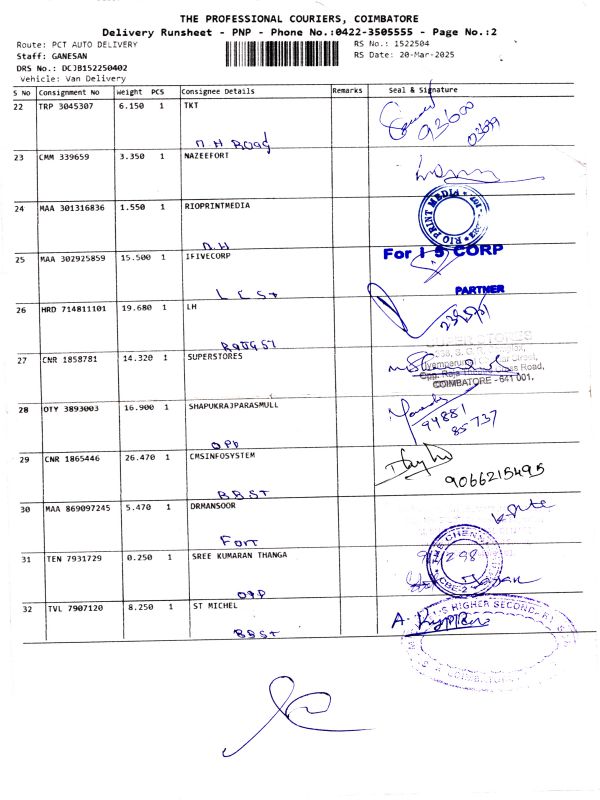 THE PROFESSIONAL COURIERS, COIMBATORE
Delivery Runsheet - PNP - Phone No.:0422-3505555 - Page No.:2
Route: PCT AUTO DELIVERY
RS No.: 1522504
Staff: GANESAN
RS Date: 20-Mar-2025
DRS No.: DCJB152250402
Vehicle: Van Delivery
S No Consignment No Weight PCS Consignee Details Remarks Seal & Signature
22 TRP 3045307 6.150 1 TKT
93600
03699
N H Road
23 CMM 339659 3.350 1 NAZEEFORT
24 MAA 301316836 1.550 1 RIOPRINTMEDIA
RIO PRINT MEDIA
N.H
25 MAA 302925859 15.500 1 IFIVECORP
For I 5 CORP
PARTNER
26 HRD 714811101 19.680 1 LH
27 CNR 1858781 14.320 1 SUPERSTORES
SUPER STORES
Opp. Raja Cross Road,
COIMBATORE - 641 001.
28 OTY 3893003 16.900 1 SHAPUKRAJPARASMULL
94881
85737
29 CNR 1865446 26.470 1 CMSINFOSYSTEM
9066215495
BBST
30 MAA 869097245 5.470 1 DRMANSOOR
Fort
31 TEN 7931729 0.250 1 SREE KUMARAN THANGA
THE CHENNAI
CBE-2
32 TVL 7907120 8.250 1 ST MICHEL
HIGHER SECONDARY
BBST
COIMBATORE